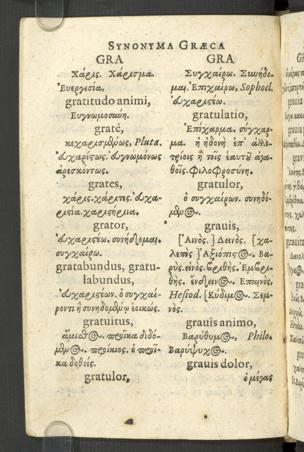 SYNONYMA GRÆCA
GRA
Χάρις. Χάρισμα.
Ευεργεσία.
gratitudo animi,
Ευγνωμοσύνη.
gratè,
κεχαρισμένως, Pluta.
ευχαρίστως. ευγνωμόνως
ἀρεσκόντως.
grates,
χάρις.
grator,
ευχαριστέω. συνήδομαι.
συγχαίρω.
gratabundus, gratu-
labundus,
ευχαριστέων. ὁ συγχαί-
ροντι ἢ συνηδομένῳ ἐοικώς.
gratuitus,
ἄμισθος. προῖκα διδό-
μενος. προίκιος. ὁ προῖ-
κα δοθείς.
gratulor,
GRA
Συγχαίρω. Συνήδο-
μαι. Ἐπιχαίρω, Sophocl.
ευχαριστέω.
gratulatio,
Ἐπίχαρμα. συγχαρ-
μα. ἡ ἡδονὴ ἐπ' ἀλλο-
τρίοις ἢ τοῖς ἑαυτοῦ ἀγα-
θοῖς. Φιλοφροσύνη.
gratulor,
ὁ συγχαίρων. συνηδό-
μενος.
grauis,
[Αἰνός.] Δεινός. [χα-
λεπὸς] Ἀξιόπιστος. Βα-
ρύς.
Ἐπαινός,
Hesiod. [Κύδιμος. Σεμ-
νός.
grauis animo,
Βαρύθυμος, Philo.
Βαρύψυχος.
grauis dolor,
ὁ μέγας